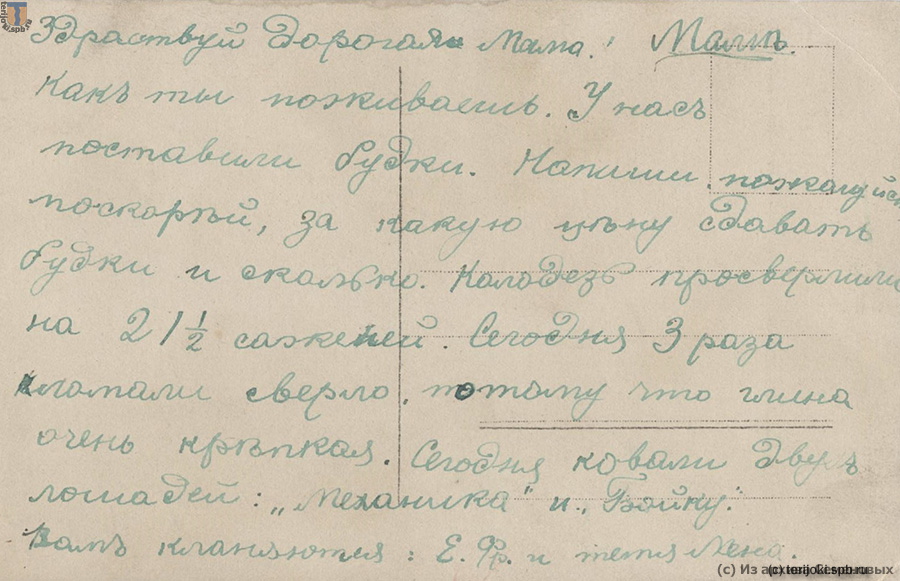 Здраствуй Дорогая Мама! Мамѣ.
Какъ ты поживаешь. У насъ
поставили будки. Напиши пожалуйс
поскорѣй, за какую цѣну сдавать
будки и сколько. Колодезь просверлили
на 21 1/2 саженей. Сегодня 3 раза
ломали сверло, потому что глина
очень крѣпкая. Сегодня ковали двухъ
лошадей: „Механика" и „Бойку".
Вамъ кланяются: Е. Фр. и тетя Лена.
terijoki.spb.ru
(c) Из ар
(c) terijoki.spb.ru